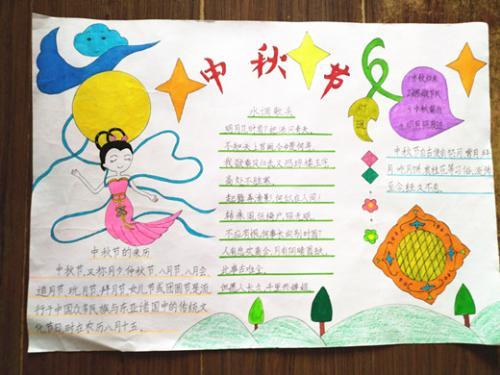 中秋节
水调歌头
明月几时有?把酒问青天。
不知天上宫阙,今夕是何年。
我欲乘风归去,又恐琼楼玉宇,
高处不胜寒。
起舞弄清影,何似在人间!
转朱阁,低绮户,照无眠。
不应有恨,何事长向别时圆?
人有悲欢离合,月有阴晴圆缺,
此事古难全。
但愿人长久,千里共婵娟。
中秋节的来历
中秋节,又称月夕、仲秋节、八月节、八月会
追月节、玩月节、拜月节、女儿节或团圆节是流
行于中国众多民族与东亚诸国中的传统文
化节日,时在农历八月十五。
中秋节自古便有祭月、赏月、拜
月、吃月饼、赏桂花等习俗,流传
至今,经久不息。